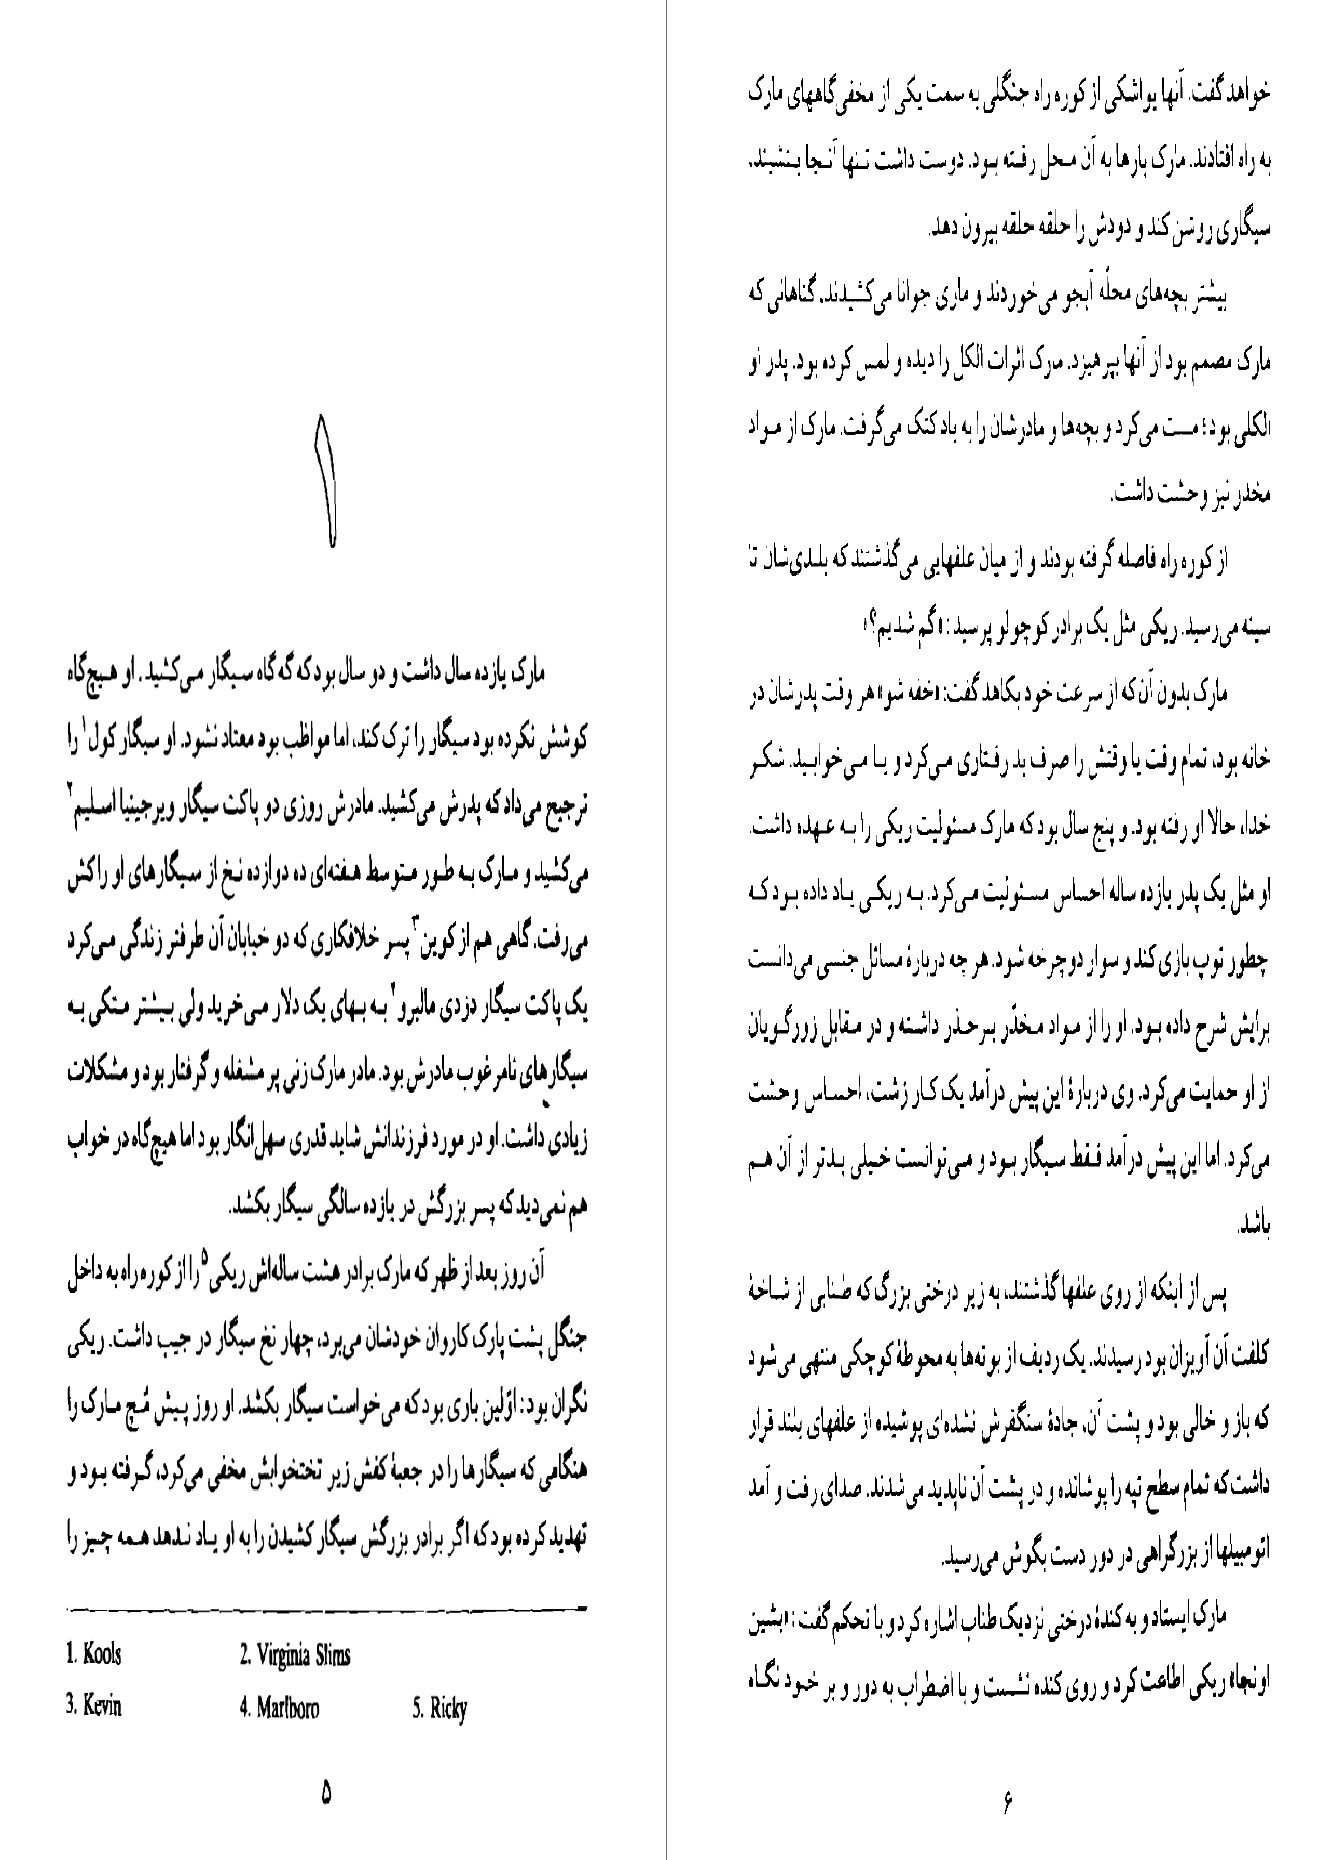 ۱
مارک یازده سال داشت و دو سال بود که گه گاه سیگار می‌کشید. او هیچ‌گاه
کوشش نکرده بود سیگار را ترک کند، اما مواظب بود معتاد نشود. او سیگار کول۱ را
ترجیح می‌داد که پدرش می‌کشید. مادرش روزی دو پاکت سیگار ویرجینیا اسلیم۲
می‌کشید و مارک به طور متوسط هفته‌ای ده دوازده نخ از سیگارهای او را کش
می‌رفت. گاهی هم از کوین۳ پسر خلافکاری که دو خیابان آن طرفتر زندگی می‌کرد
یک پاکت سیگار دزدی مالبرو۴ به بهای یک دلار می‌خرید ولی بیشتر متکی به
سیگارهای نامرغوب مادرش بود. مادر مارک زنی پر مشغله و گرفتار بود و مشکلات
زیادی داشت. او در مورد فرزندانش شاید قدری سهل‌انگار بود اما هیچ‌گاه در خواب
هم نمی‌دید که پسر بزرگش در یازده سالگی سیگار بکشد.
آن روز بعد از ظهر که مارک برادر هشت ساله‌اش ریکی۵ را از کوره راه به داخل
جنگل پشت پارک کاروان خودشان می‌برد، چهار نخ سیگار در جیب داشت. ریکی
نگران بود: اوّلین باری بود که می‌خواست سیگار بکشد. او روز پیش مُچ مارک را
هنگامی که سیگارها را در جعبهٔ کفش زیر تختخوابش مخفی می‌کرد، گرفته بود و
تهدید کرده بود که اگر برادر بزرگش سیگار کشیدن را به او یاد ندهد همه چیز را
1. Kools 2. Virginia Slims
3. Kevin 4. Marlboro 5. Ricky
۵
خواهد گفت. آنها یواشکی از کوره راه جنگلی به سمت یکی از مخفی‌گاههای مارک
به راه افتادند. مارک بارها به آن محل رفته بود. دوست داشت تنها آنجا بنشیند،
سیگاری روشن کند و دودش را حلقه حلقه بیرون دهد.
بیشتر بچه‌های محلّه آبجو می‌خوردند و ماری جوانا می‌کشیدند. گناهانی که
مارک مصمم بود از آنها بپرهیزد. مارک اثرات الکل را دیده و لمس کرده بود. پدر او
الکلی بود؛ مست می‌کرد و بچه‌ها و مادرشان را به باد کتک می‌گرفت. مارک از مواد
مخدر نیز وحشت داشت.
از کوره راه فاصله گرفته بودند و از میان علفهایی می‌گذشتند که بلندی‌شان تا
سینه می‌رسید. ریکی مثل یک برادر کوچولو پرسید: «گم شدیم؟»
مارک بدون آن‌که از سرعت خود بکاهد گفت: «خفه شو» هر وقت پدرشان در
خانه بود، تمام وقت یا وقتش را صرف بد رفتاری می‌کرد و یا می‌خوابید. شکر
خدا، حالا او رفته بود. و پنج سال بود که مارک مسئولیت ریکی را به عهده داشت.
او مثل یک پدر یازده ساله احساس مسئولیت می‌کرد. به ریکی یاد داده بود که
چطور توپ بازی کند و سوار دوچرخه شود. هر چه دربارهٔ مسائل جنسی می‌دانست
برایش شرح داده بود. او را از مواد مخدّر برحذر داشته و در مقابل زورگویان
از او حمایت می‌کرد. وی دربارهٔ این پیش درآمد یک کار زشت، احساس وحشت
می‌کرد. اما این پیش درآمد فقط سیگار بود و می‌توانست خیلی بدتر از آن هم
باشد.
پس از اینکه از روی علفها گذشتند، به زیر درختی بزرگ که طنابی از شاخهٔ
کلفت آن آویزان بود رسیدند. یک ردیف از بوته‌ها به محوطهٔ کوچکی منتهی می‌شود
که باز و خالی بود و پشت آن، جادهٔ سنگفرش نشده‌ای پوشیده از علفهای بلند قرار
داشت که تمام سطح تپه را پوشانده و در پشت آن ناپدید می‌شدند. صدای رفت و آمد
اتومبیلها از بزرگراهی در دور دست بگوش می‌رسید.
مارک ایستاد و به کندهٔ درختی نزدیک طناب اشاره کرد و با تحکم گفت: «بشین
اونجا» ریکی اطاعت کرد و روی کنده نشست و با اضطراب به دور و بر خود نگاه
۶